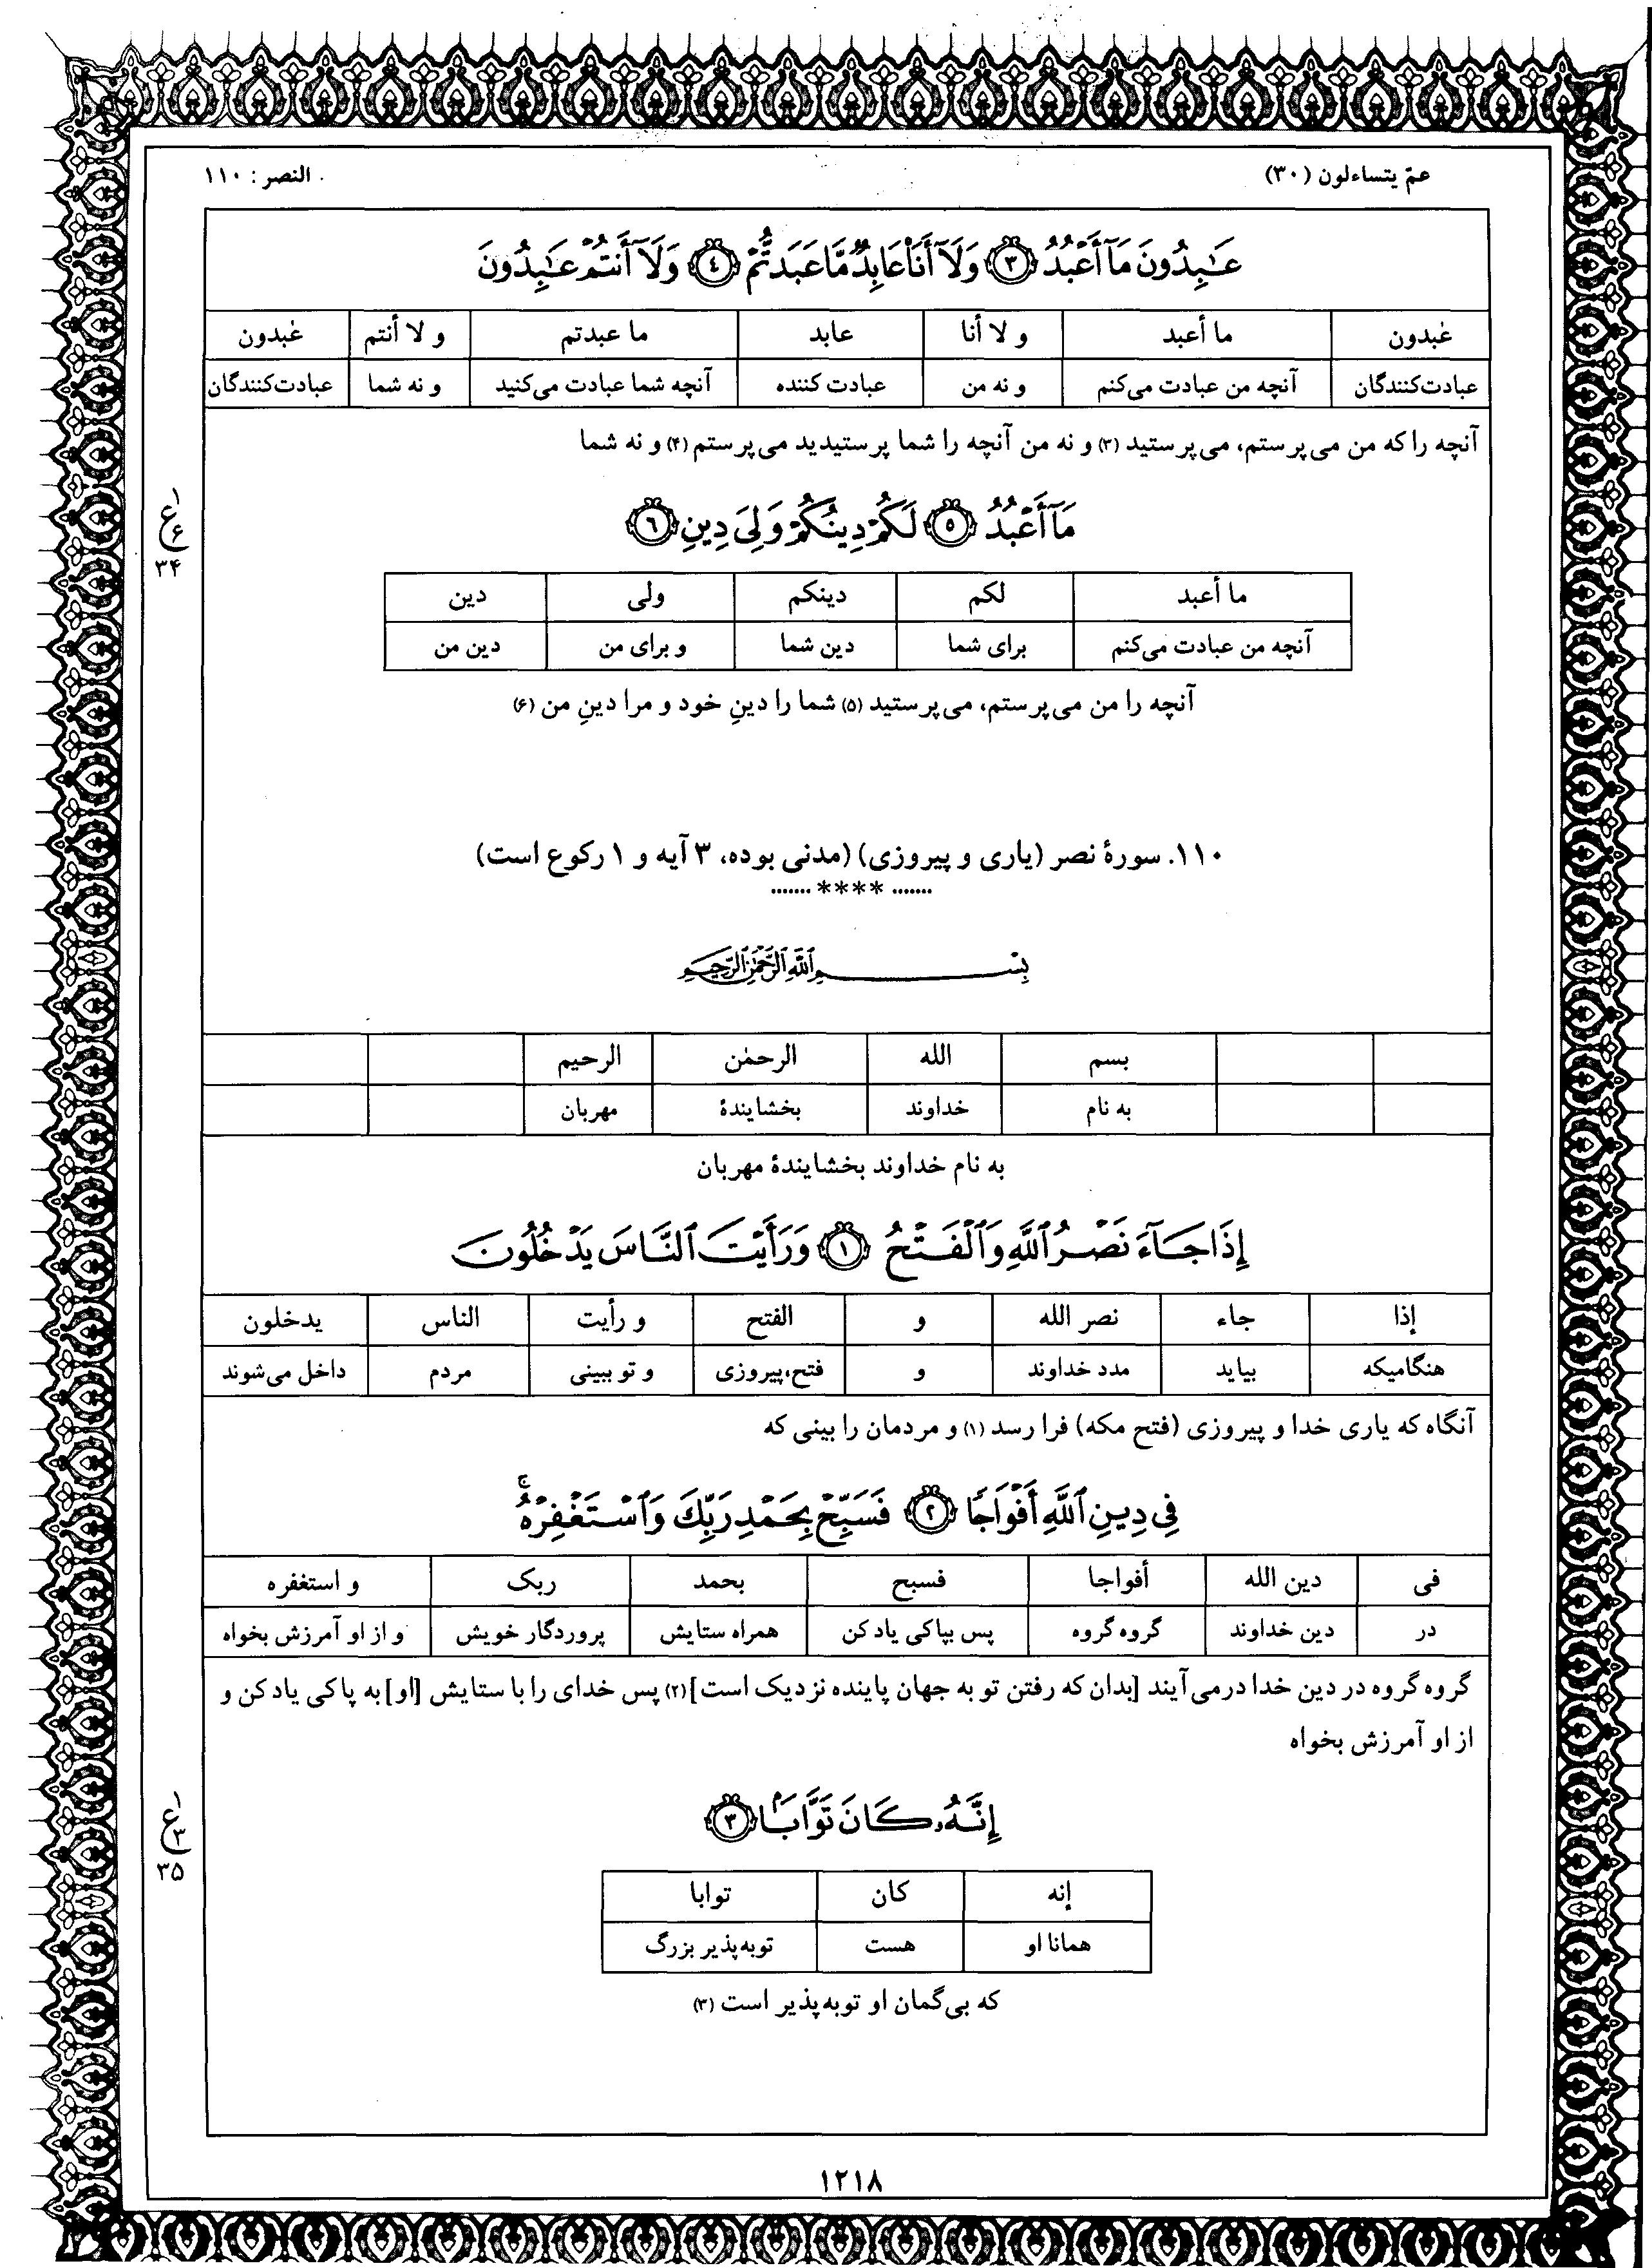 عمّ یتساءلون (۳۰)
النصر : ۱۱۰
عَـٰبِدُونَ مَآ أَعۡبُدُ ٣ وَلَآ أَنَا۠ عَابِدٞ مَّا عَبَدتُّمۡ ٤ وَلَآ أَنتُمۡ عَـٰبِدُونَ
عٰبدون | ما أعبد | و لا أنا | عابد | ما عبدتم | و لا أنتم | عٰبدون
عبادت‌کنندگان | آنچه من عبادت می‌کنم | و نه من | عبادت کننده | آنچه شما عبادت می‌کنید | و نه شما | عبادت‌کنندگان
آنچه را که من می‌پرستم، می‌پرستید (۳) و نه من آنچه را شما پرستیدید می‌پرستم (۴) و نه شما
مَآ أَعۡبُدُ ٥ لَكُمۡ دِينُكُمۡ وَلِيَ دِينِ ٦
۱
ع
۶
۳۴
ما أعبد | لکم | دینکم | ولی | دین
آنچه من عبادت می‌کنم | برای شما | دین شما | و برای من | دین من
آنچه را من می‌پرستم، می‌پرستید (۵) شما را دینِ خود و مرا دینِ من (۶)
۱۱۰. سورهٔ نصر (یاری و پیروزی) (مدنی بوده، ۳ آیه و ۱ رکوع است)
....... **** .......
بِسۡمِ ٱللَّهِ ٱلرَّحۡمَٰنِ ٱلرَّحِيمِ
بسم | الله | الرحمٰن | الرحیم
به نام | خداوند | بخشایندهٔ | مهربان
به نام خداوند بخشایندهٔ مهربان
إِذَا جَآءَ نَصۡرُ ٱللَّهِ وَٱلۡفَتۡحُ ١ وَرَأَيۡتَ ٱلنَّاسَ يَدۡخُلُونَ
إذا | جاء | نصر الله | و | الفتح | و رأیت | الناس | یدخلون
هنگامیکه | بیاید | مدد خداوند | و | فتح،پیروزی | و تو ببینی | مردم | داخل می‌شوند
آنگاه که یاری خدا و پیروزی (فتح مکه) فرا رسد (۱) و مردمان را بینی که
فِي دِينِ ٱللَّهِ أَفۡوَاجٗا ٢ فَسَبِّحۡ بِحَمۡدِ رَبِّكَ وَٱسۡتَغۡفِرۡهُۚ
فی | دین الله | أفواجا | فسبح | بحمد | ربک | و استغفره
در | دین خداوند | گروه گروه | پس بپاکی یاد کن | همراه ستایش | پروردگار خویش | و از او آمرزش بخواه
گروه گروه در دین خدا درمی‌آیند [بدان که رفتن تو به جهان پاینده نزدیک است] (۲) پس خدای را با ستایش [او] به پاکی یاد کن و
از او آمرزش بخواه
إِنَّهُۥ كَانَ تَوَّابَۢا ٣
۱
ع
۳
۳۵
إنه | کان | توابا
همانا او | هست | توبه‌پذیر بزرگ
که بی‌گمان او توبه‌پذیر است (۳)
۱۲۱۸